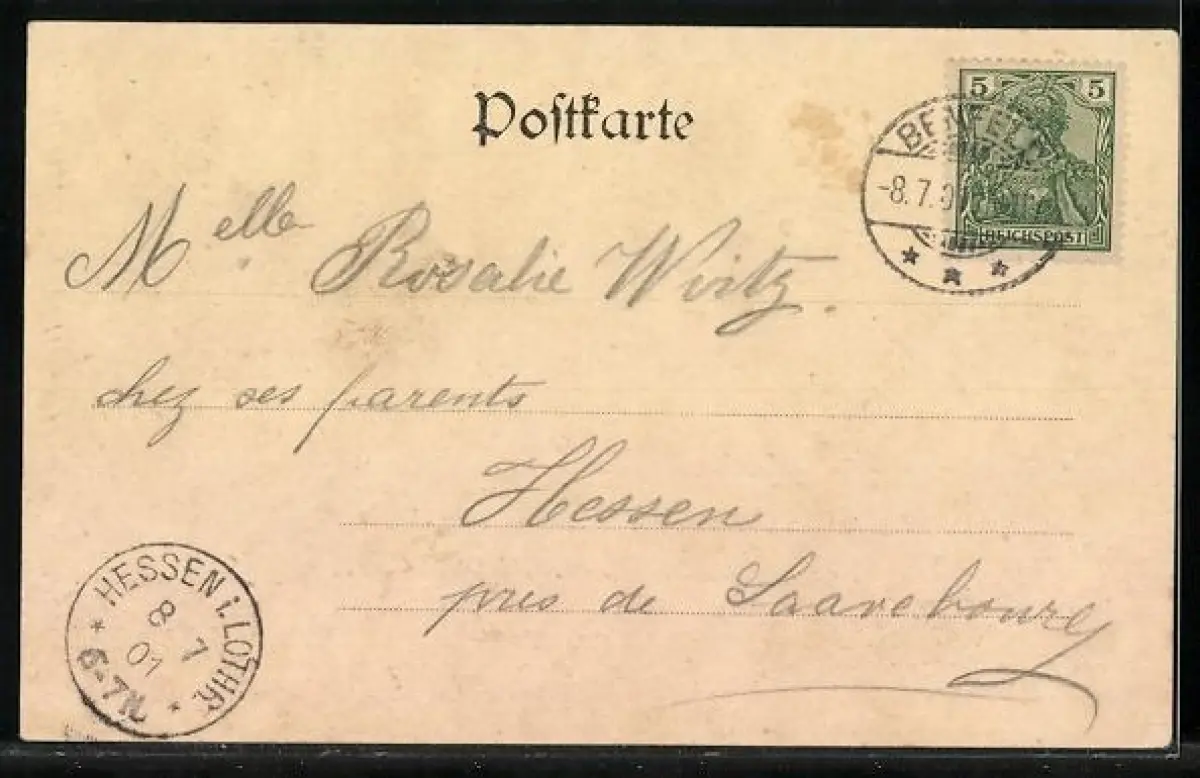 Postkarte
5 5
REICHSPOST
-8.7.0
Melle Rosalie Wirtz.
chez ses parents
Hessen
près de Saarebourg
HESSEN i. LOTHR.
8 7
01
6-7N.